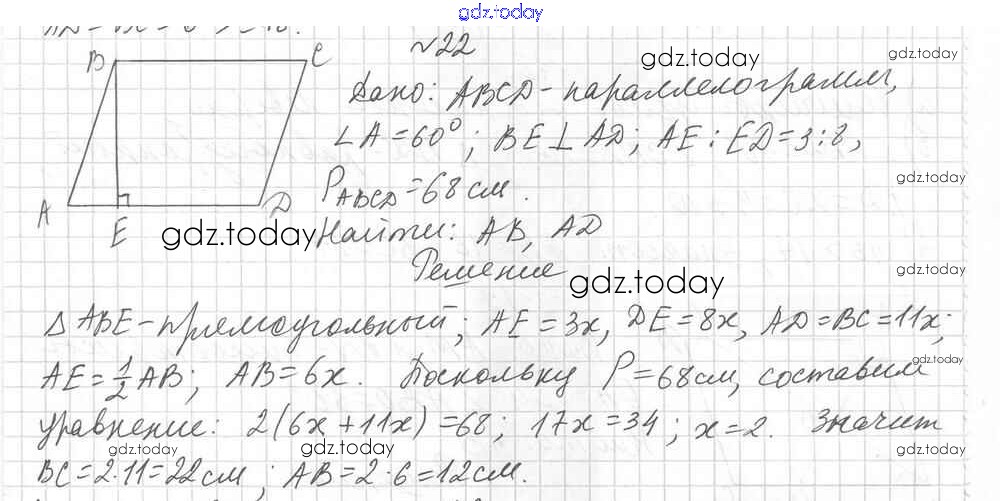 gdz.today
№22
B C gdz.today gdz.today
Дано: ABCD-параллелограмм,
∠A=60°; BE⊥AD; AE:ED=3:8,
P_ABCD=68см. gdz.today
A E D
gdz.today Найти: AB, AD
Решение gdz.today
gdz.today
△ABE-прямоугольный; AE=3x, DE=8x, AD=BC=11x;
AE=1/2AB; AB=6x. Поскольку P=68см, составим gdz.today
уравнение: 2(6x+11x)=68; 17x=34; x=2. Значит
gdz.today gdz.today gdz.today
BC=2·11=22см; AB=2·6=12см.